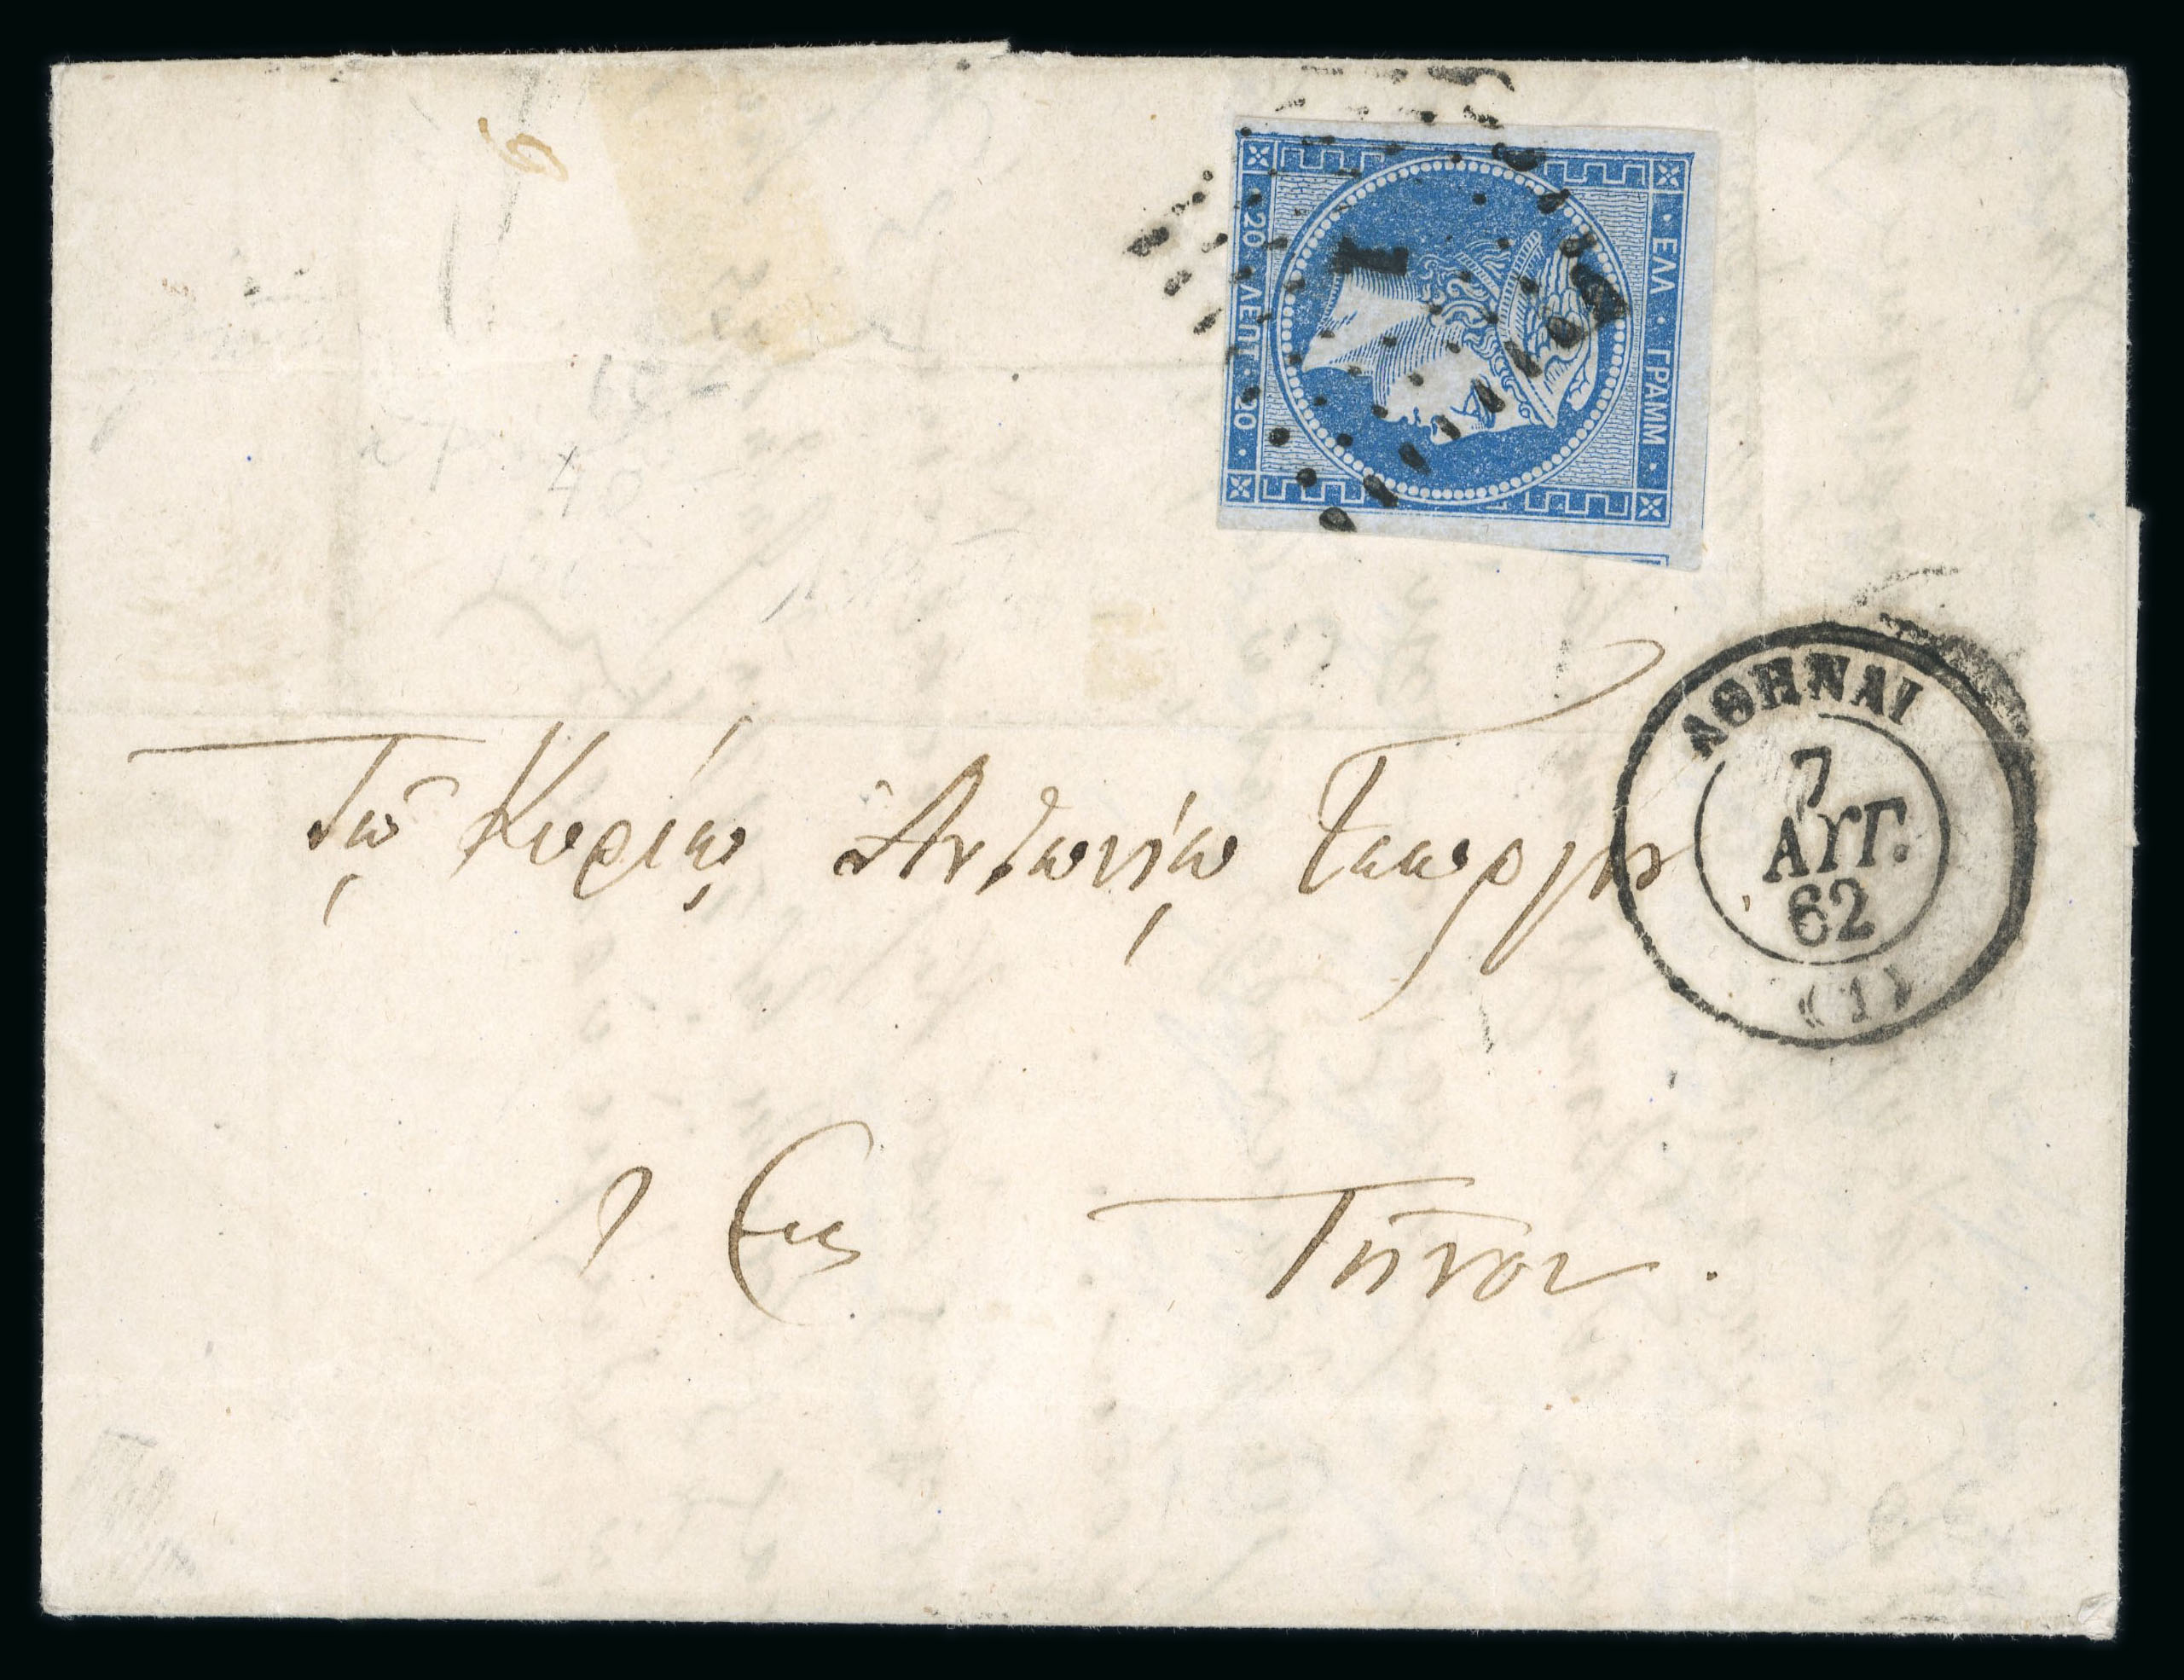 ΕΛΛ · ΓΡΑΜΜ
20 ΛΕΠΤ 20
1
ΑΘΗΝΑΙ
7
ΑΥΓ.
62
(1)
Τῷ Κυρίῳ Ἀντωνίῳ
Εις Τῆνον.
40